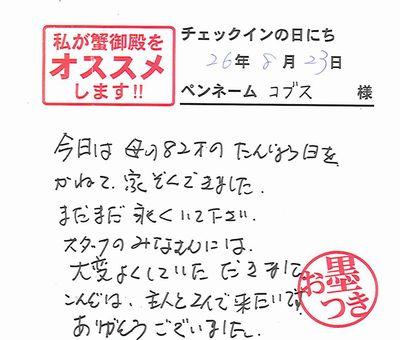 私が蟹御殿を
オススメ
します!!
チェックインの日にち
26年 8月 23日
ペンネーム コブス 様
今日は 母の82才の たんじょう日を
かねて、家ぞくできました.
まだまだ 永くいて下さい.
スタッフのみなさんには、
大変よくしていた だきまして
こんどは、主人と2人で来たいです
ありがとうございました.
お墨つき